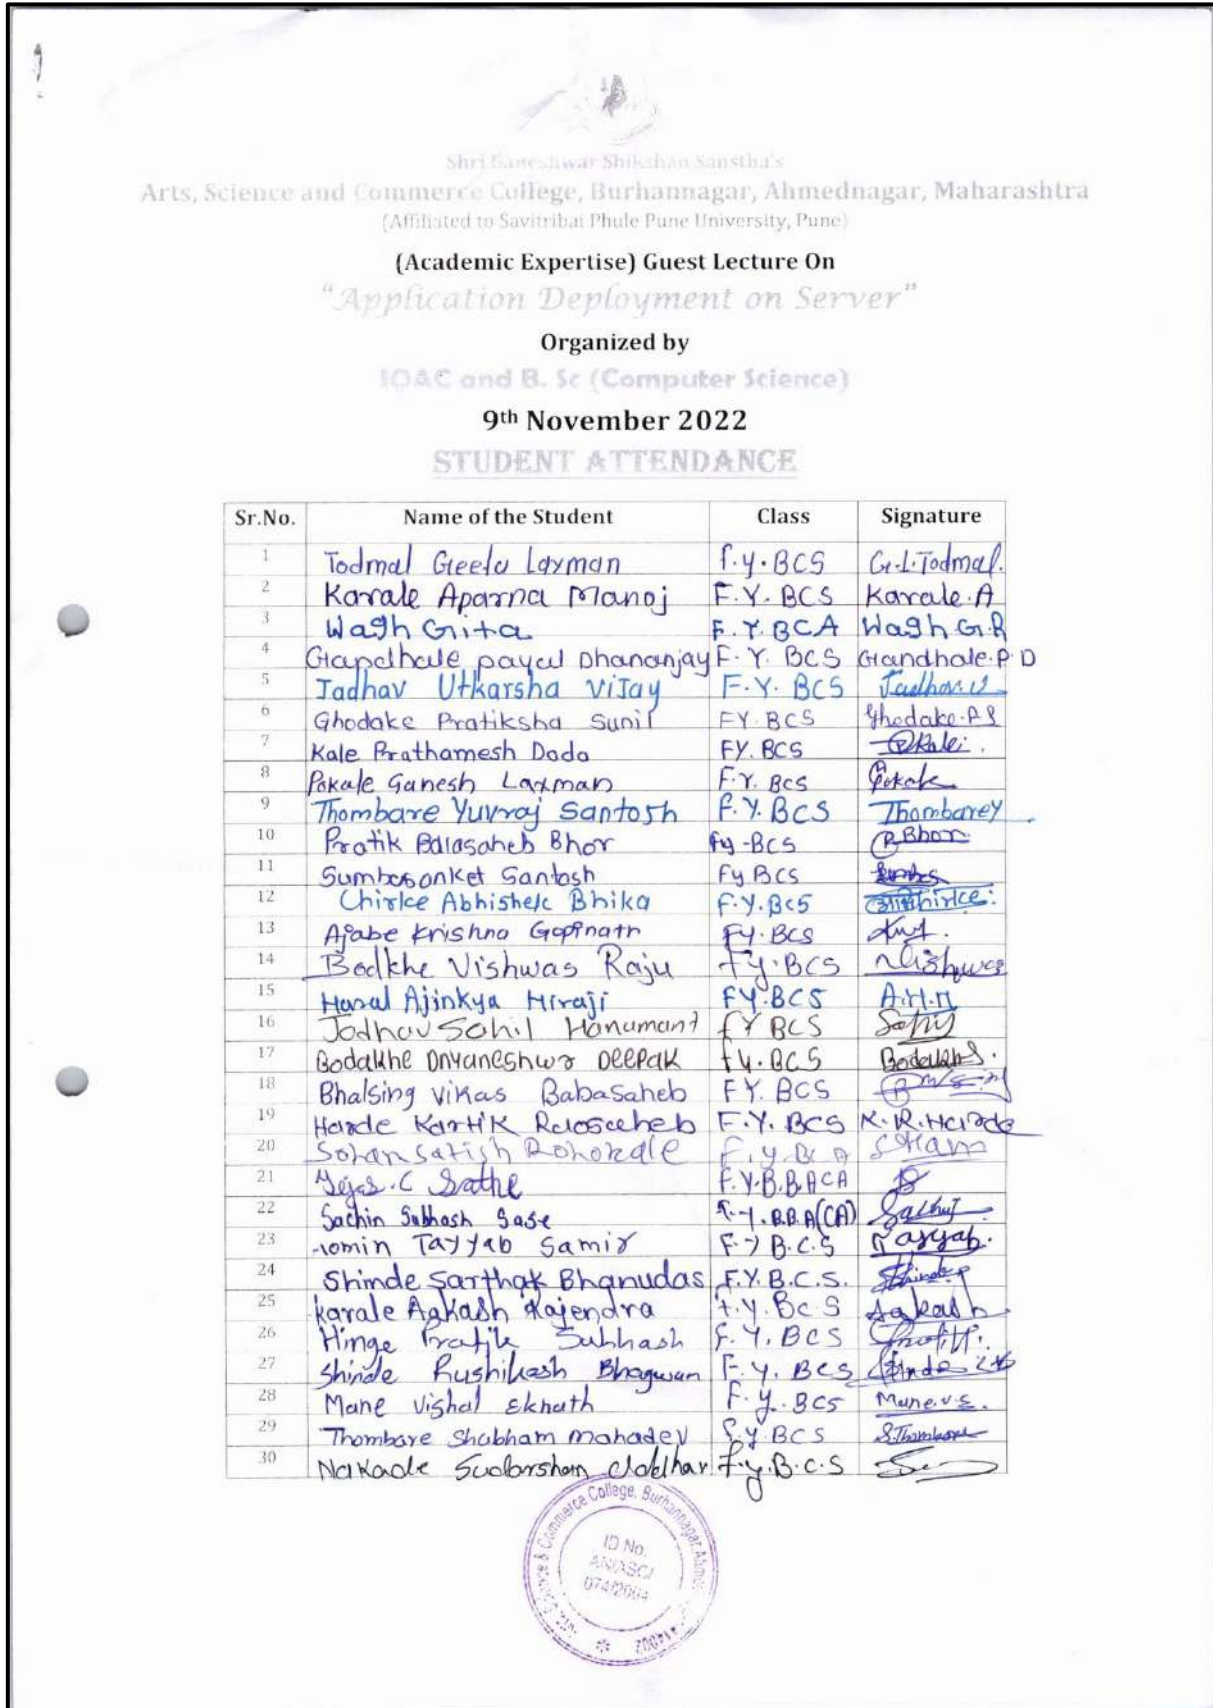 Shri Baneshwar Shikshan Sanstha's
Arts, Science and Commerce College, Burhannagar, Ahmednagar, Maharashtra
(Affiliated to Savitribai Phule Pune University, Pune)
(Academic Expertise) Guest Lecture On
"Application Deployment on Server"
Organized by
IQAC and B. Sc (Computer Science)
9th November 2022
STUDENT ATTENDANCE
Sr.No. Name of the Student Class Signature
1 Todmal Geeta Laxman F.Y.BCS G.L.Todmal.
2 Karale Aparna Manoj F.Y.BCS Karale.A
3 Wagh Gita F.Y.BCA Wagh G.R
4 Gandhale payal Dhananjay F.Y. BCS Gandhale.P.D
5 Jadhav Utkarsha Vijay F.Y. BCS Jadhav.U
6 Ghodake Pratiksha Sunil FY.BCS Ghodake.P.S
7 Kale Prathamesh Dada FY.BCS
8 Pokale Ganesh Laxman F.Y. BCS Pokale
9 Thombare Yuvraj Santosh F.Y.BCS ThombareY
10 Pratik Balasaheb Bhor Fy-BCS P.Bhor
11 Santosh Fy BCS
12 Chirke Abhishek Bhika F.Y.BCS
13 Ajabe Krishna Gopinath FY.BCS
14 Bodkhe Vishwas Raju Fy.BCS Vishwas
15 Harал Ajinkya Hiraji FY.BCS A.H.H
16 Jadhav Sahil Hanumant FY BCS
17 Bodakhe Dnyaneshwar Deepak Fy.BCS
18 Bhalsing Vikas Babasaheb FY. BCS
19 Harde Kartik Raosaheb F.Y. BCS K.R.Harde
20 Sohan Satish Rohokale F.Y.BCA
21 C Sathe F.Y.B.BACA
22 Sachin Subhash Sase F.Y.B.B.A(CA)
23 Tayyab Samir F.Y B.C.S Tayyab.
24 Shinde Sarthak Bhanudas F.Y.B.C.S. Shinde
25 Karale Aakash Rajendra F.Y.BCS Aakash
26 Hinge Pratik Subhash F.Y.BCS
27 Shinde Rushikesh Bhagwan F.Y. BCS
28 Mane Vishal Eknath F.Y.BCS Mane.V.E.
29 Thombare Shubham Mahadev F.Y BCS S.Thombare
30 Nakade Sudarshan F.Y.B.C.S
Science & Commerce College, Burhannagar, Ahmed
ID No.
AN/ASC/
074/2004